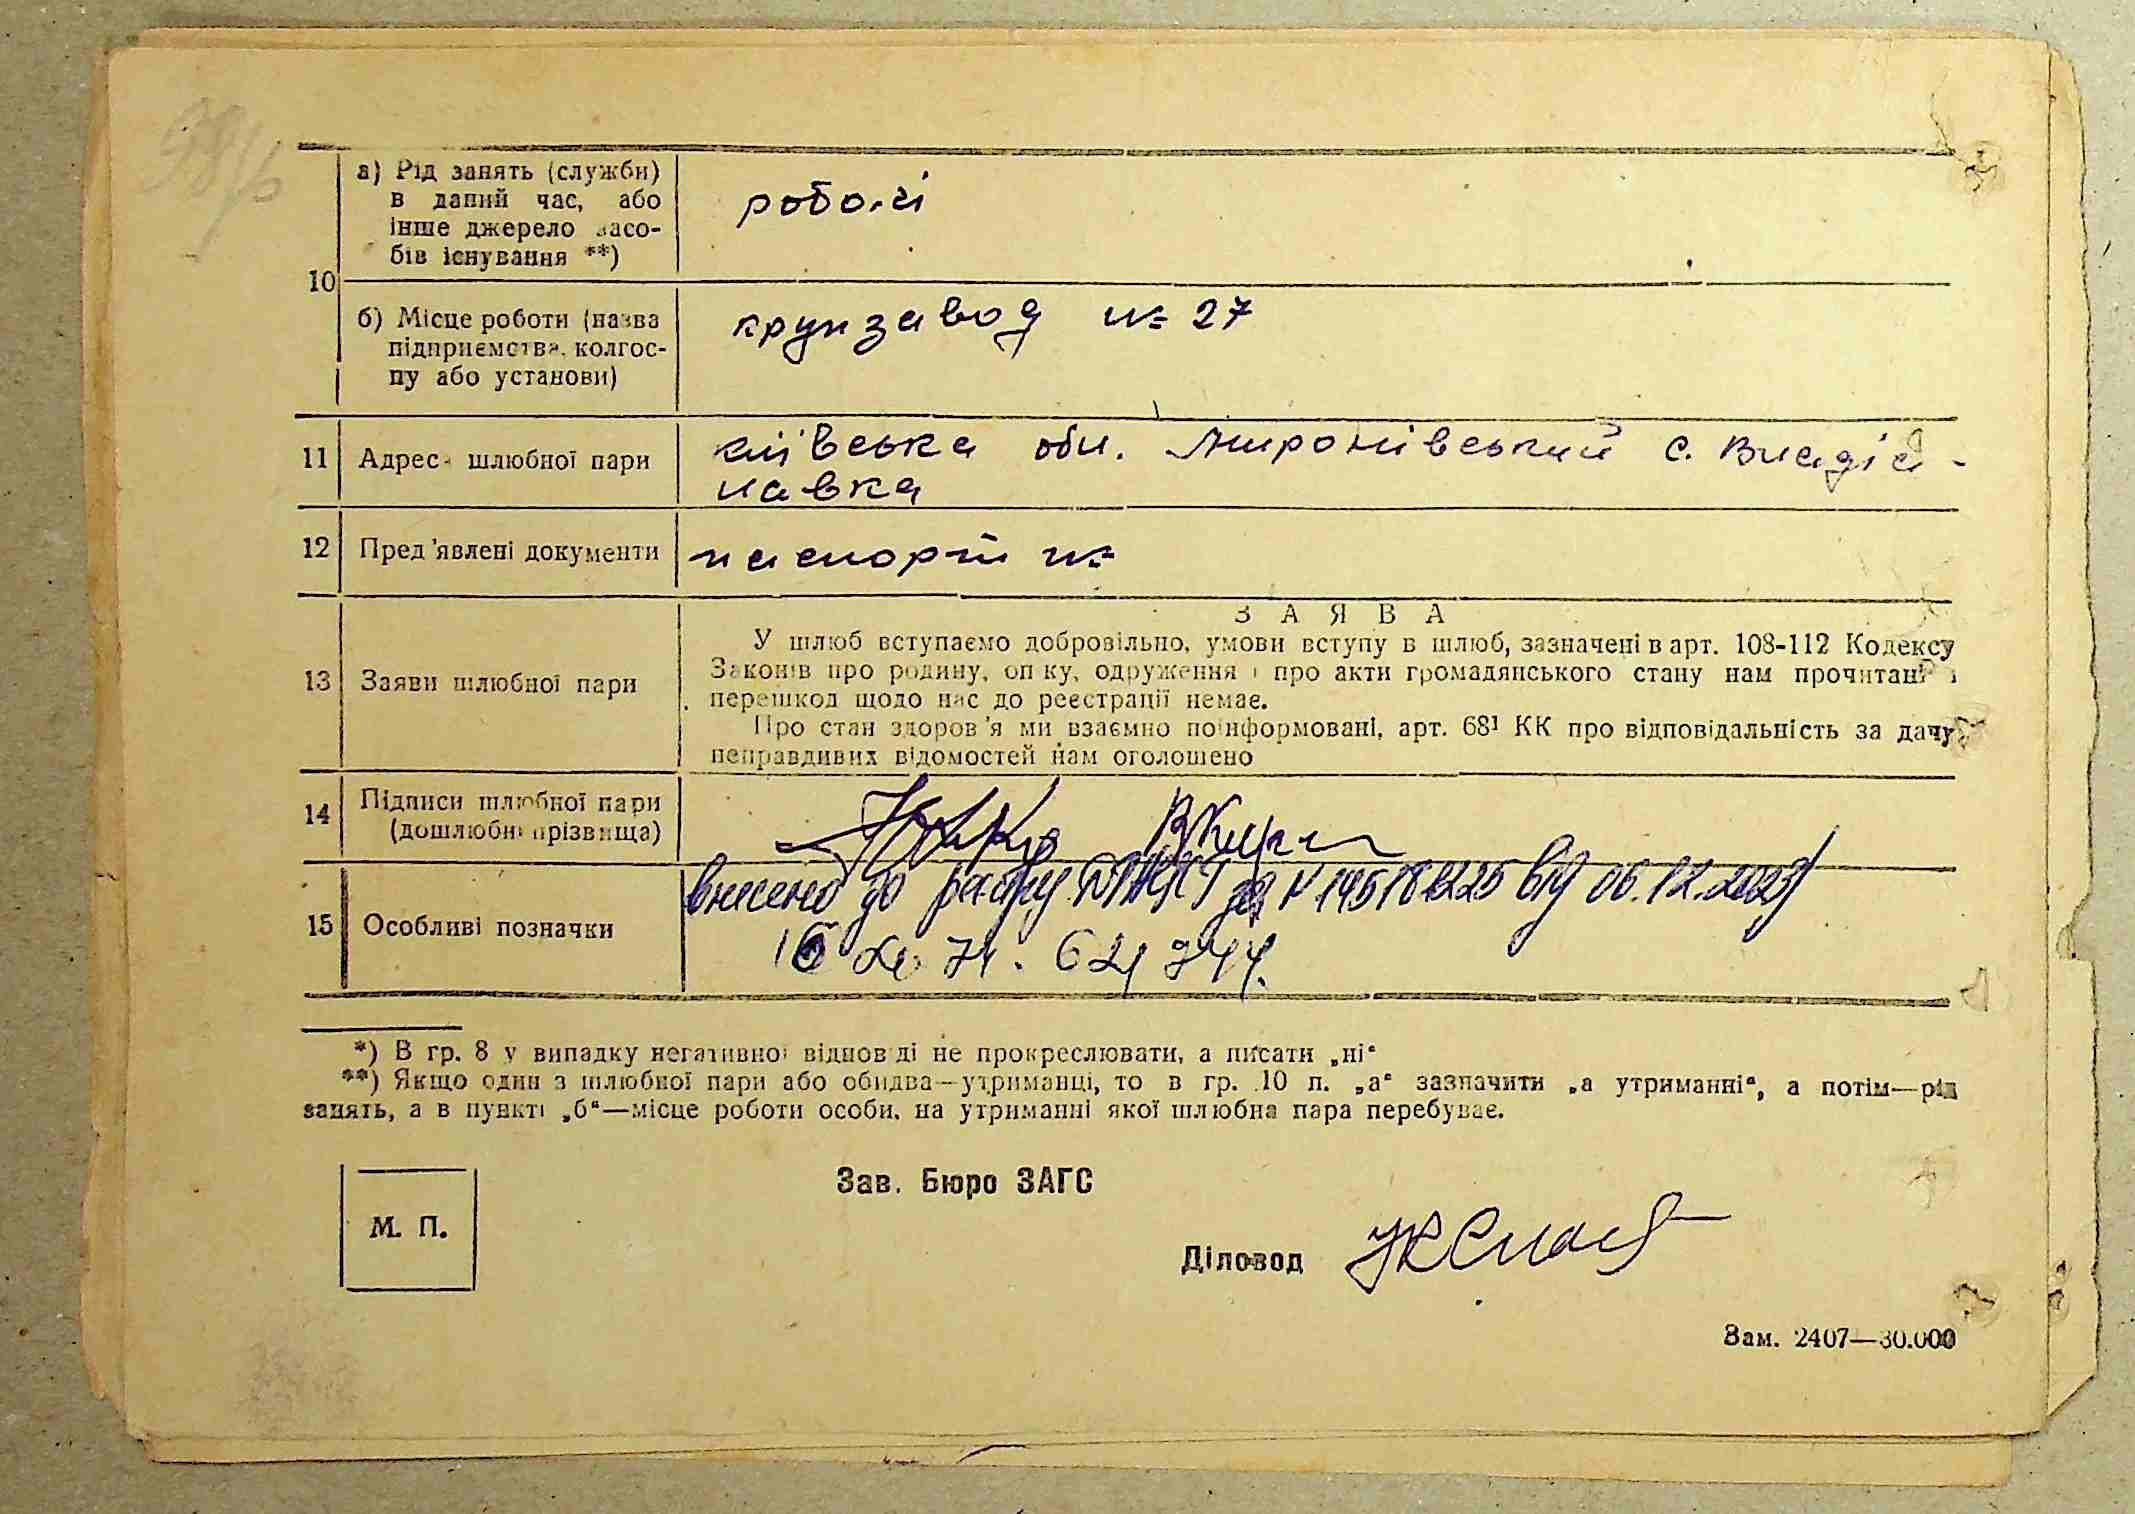 10
а) Рід занять (служби)
в даний час, або
інше джерело засо-
бів існування **)
робочі
б) Місце роботи (назва
підприємства, колгос-
пу або установи)
крупзавод № 27
11 Адреса шлюбної пари
київська обл. Миронівський с. Владіс-
лавка
12 Пред'явлені документи паспорти №
13 Заяви шлюбної пари
ЗАЯВА
У шлюб вступаємо добровільно, умови вступу в шлюб, зазначені в арт. 108-112 Кодексу
Законів про родину, опіку, одруження і про акти громадянського стану нам прочитані і
перешкод щодо нас до реєстрації немає.
Про стан здоров'я ми взаємно поінформовані, арт. 68¹ КК про відповідальність за дачу
неправдивих відомостей нам оголошено
14 Підписи шлюбної пари
(дошлюбні прізвища)
15 Особливі позначки
внесено до реєстру за № від 06.12.2023
*) В гр. 8 у випадку негативної відповіді не прокреслювати, а писати „ні“
**) Якщо один з шлюбної пари або обидва—утриманці, то в гр. 10 п. „а“ зазначити „а утриманні“, а потім—рід
занять, а в пункті „б“—місце роботи особи, на утриманні якої шлюбна пара перебуває.
Зав. Бюро ЗАГС
М. П.
Діловод
Зам. 2407—30.000